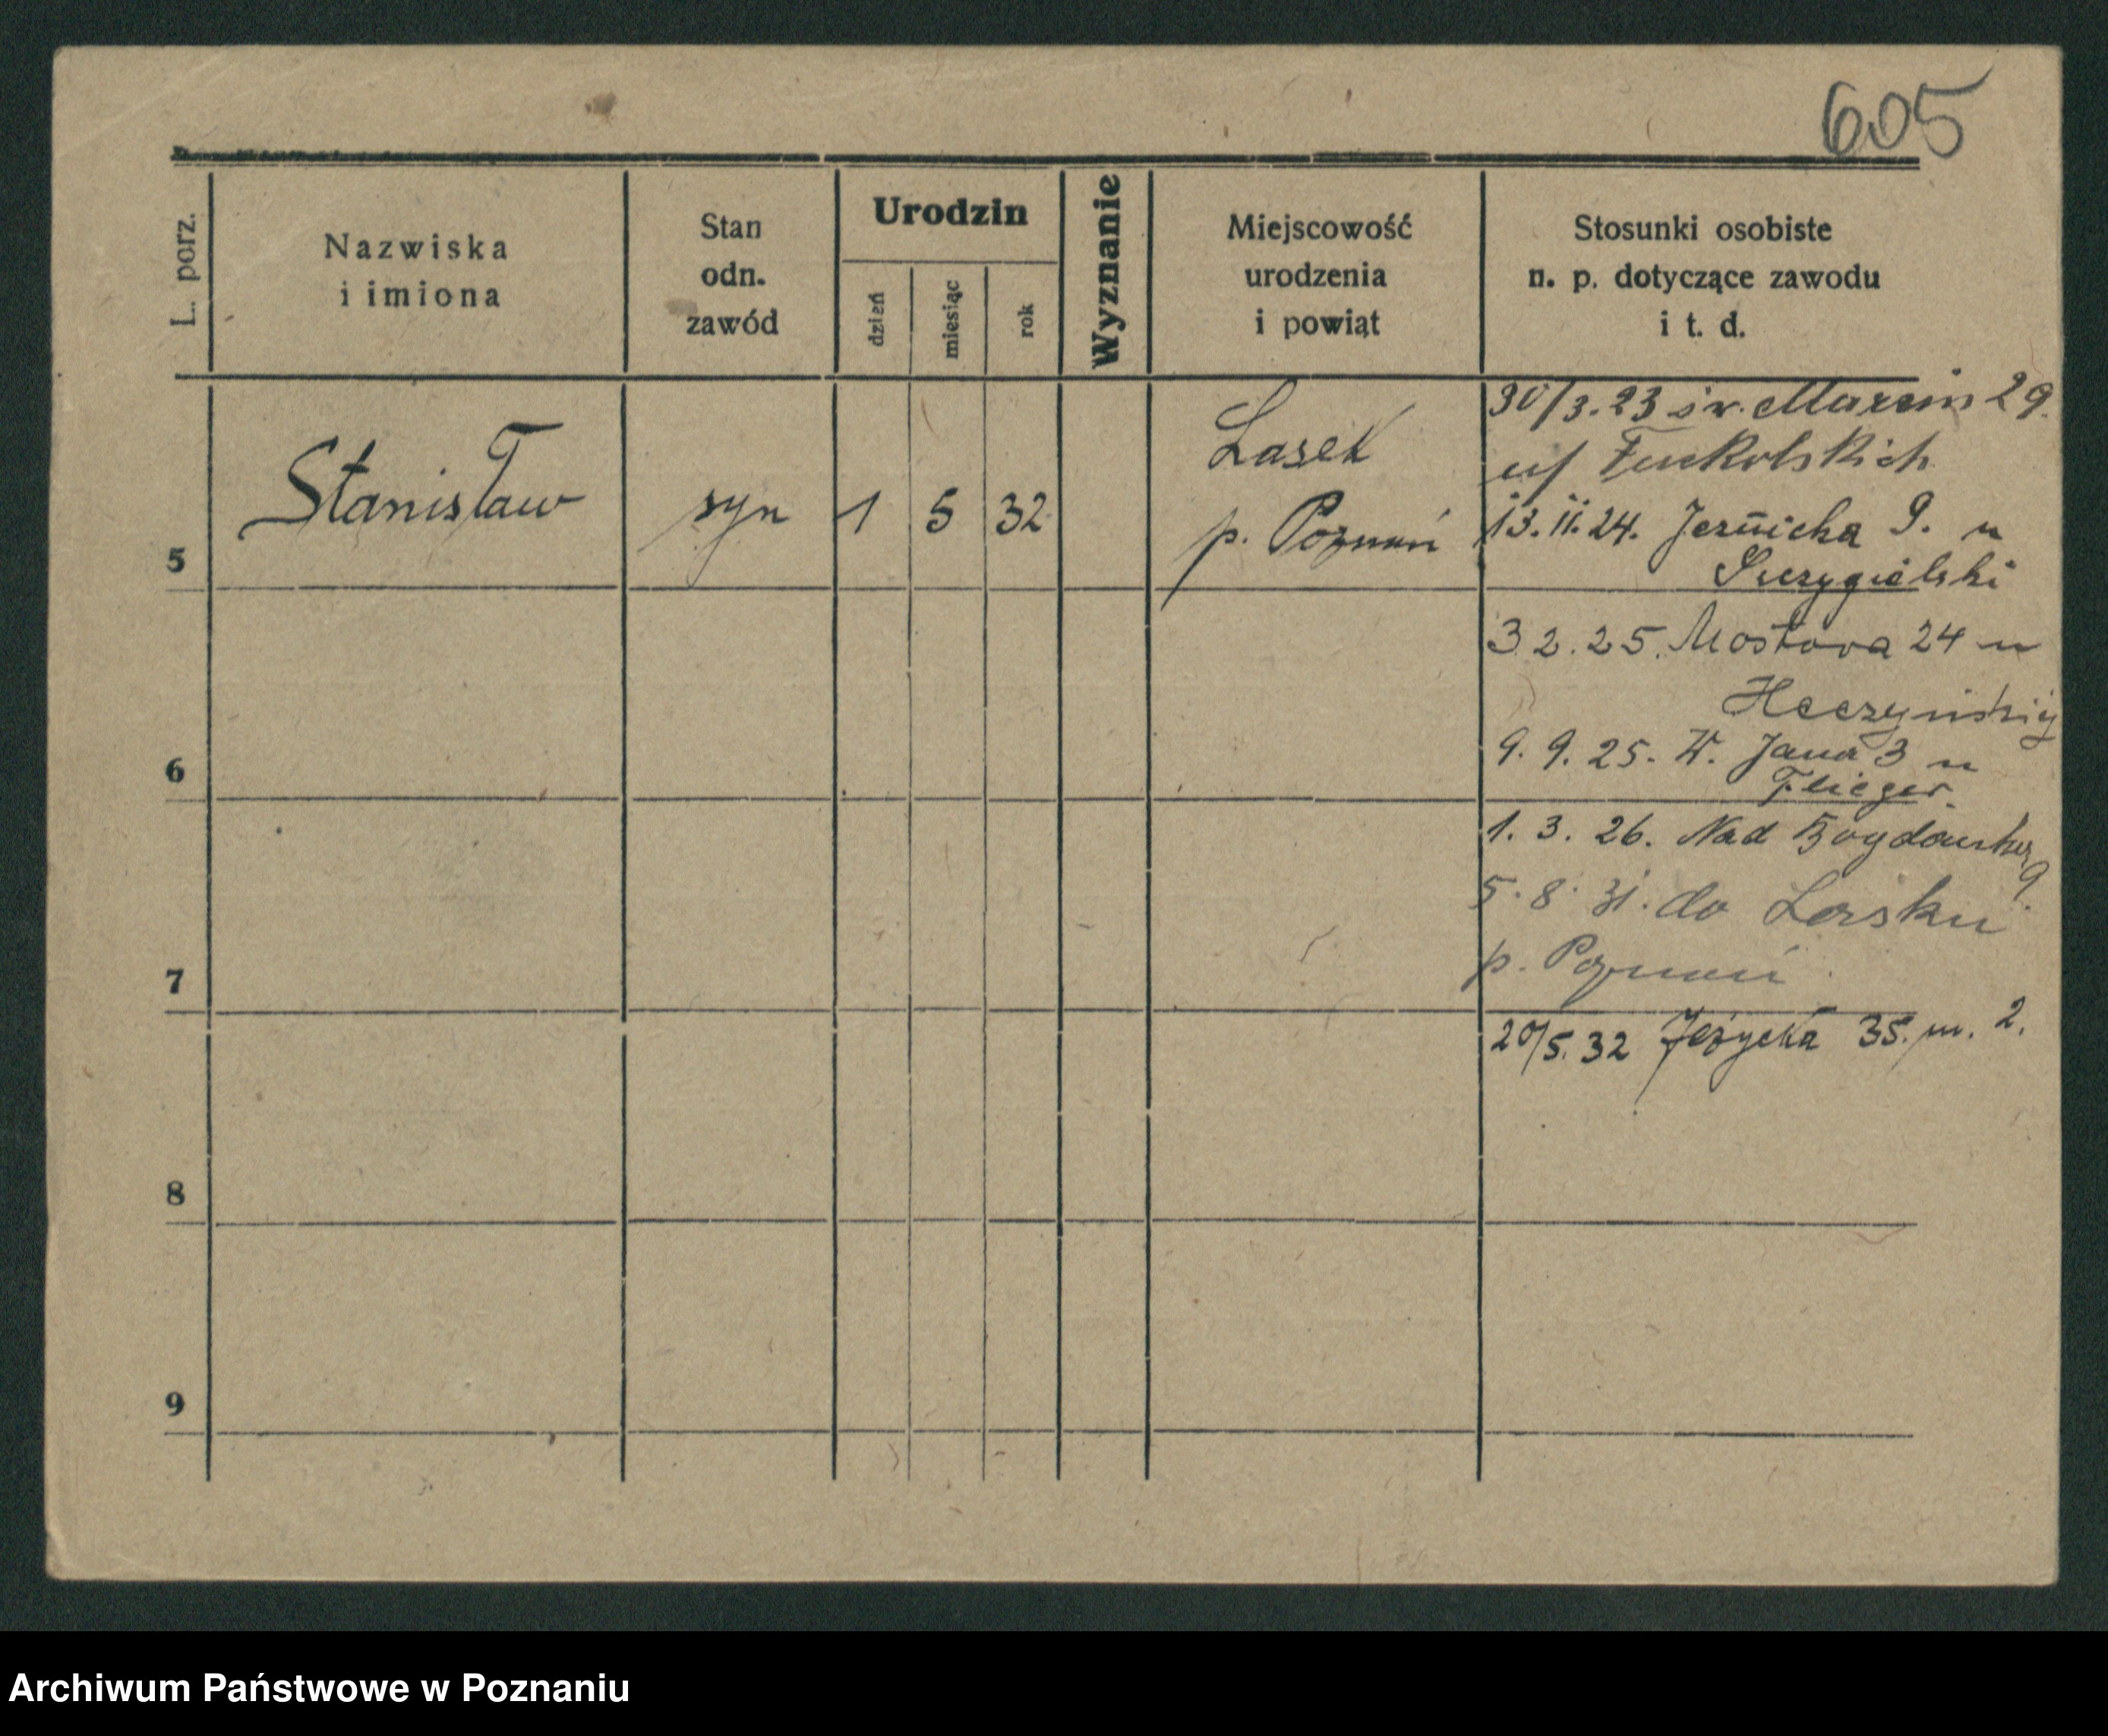 605
L. porz.
Nazwiska
i imiona
Stan
odn.
zawód
Urodzin
dzień
miesiąc
rok
Wyznanie
Miejscowość
urodzenia
i powiąt
Stosunki osobiste
n. p. dotyczące zawodu
i t. d.
5
Stanisław
syn
1
5
32
Lasek
p. Poznań
30/3.23 św. Marcin 29.
13.11.24. 9. u
3 2.25. Mostowa 24 u
9. 9. 25. W. Jana 3 u
Flieger.
1. 3. 26. Nad Bogdanką
9.
5. 8. 31. do Lasku
p. Poznań
20/5.32 Jeżycka 35. m. 2.
6
7
8
9
Archiwum Państwowe w Poznaniu